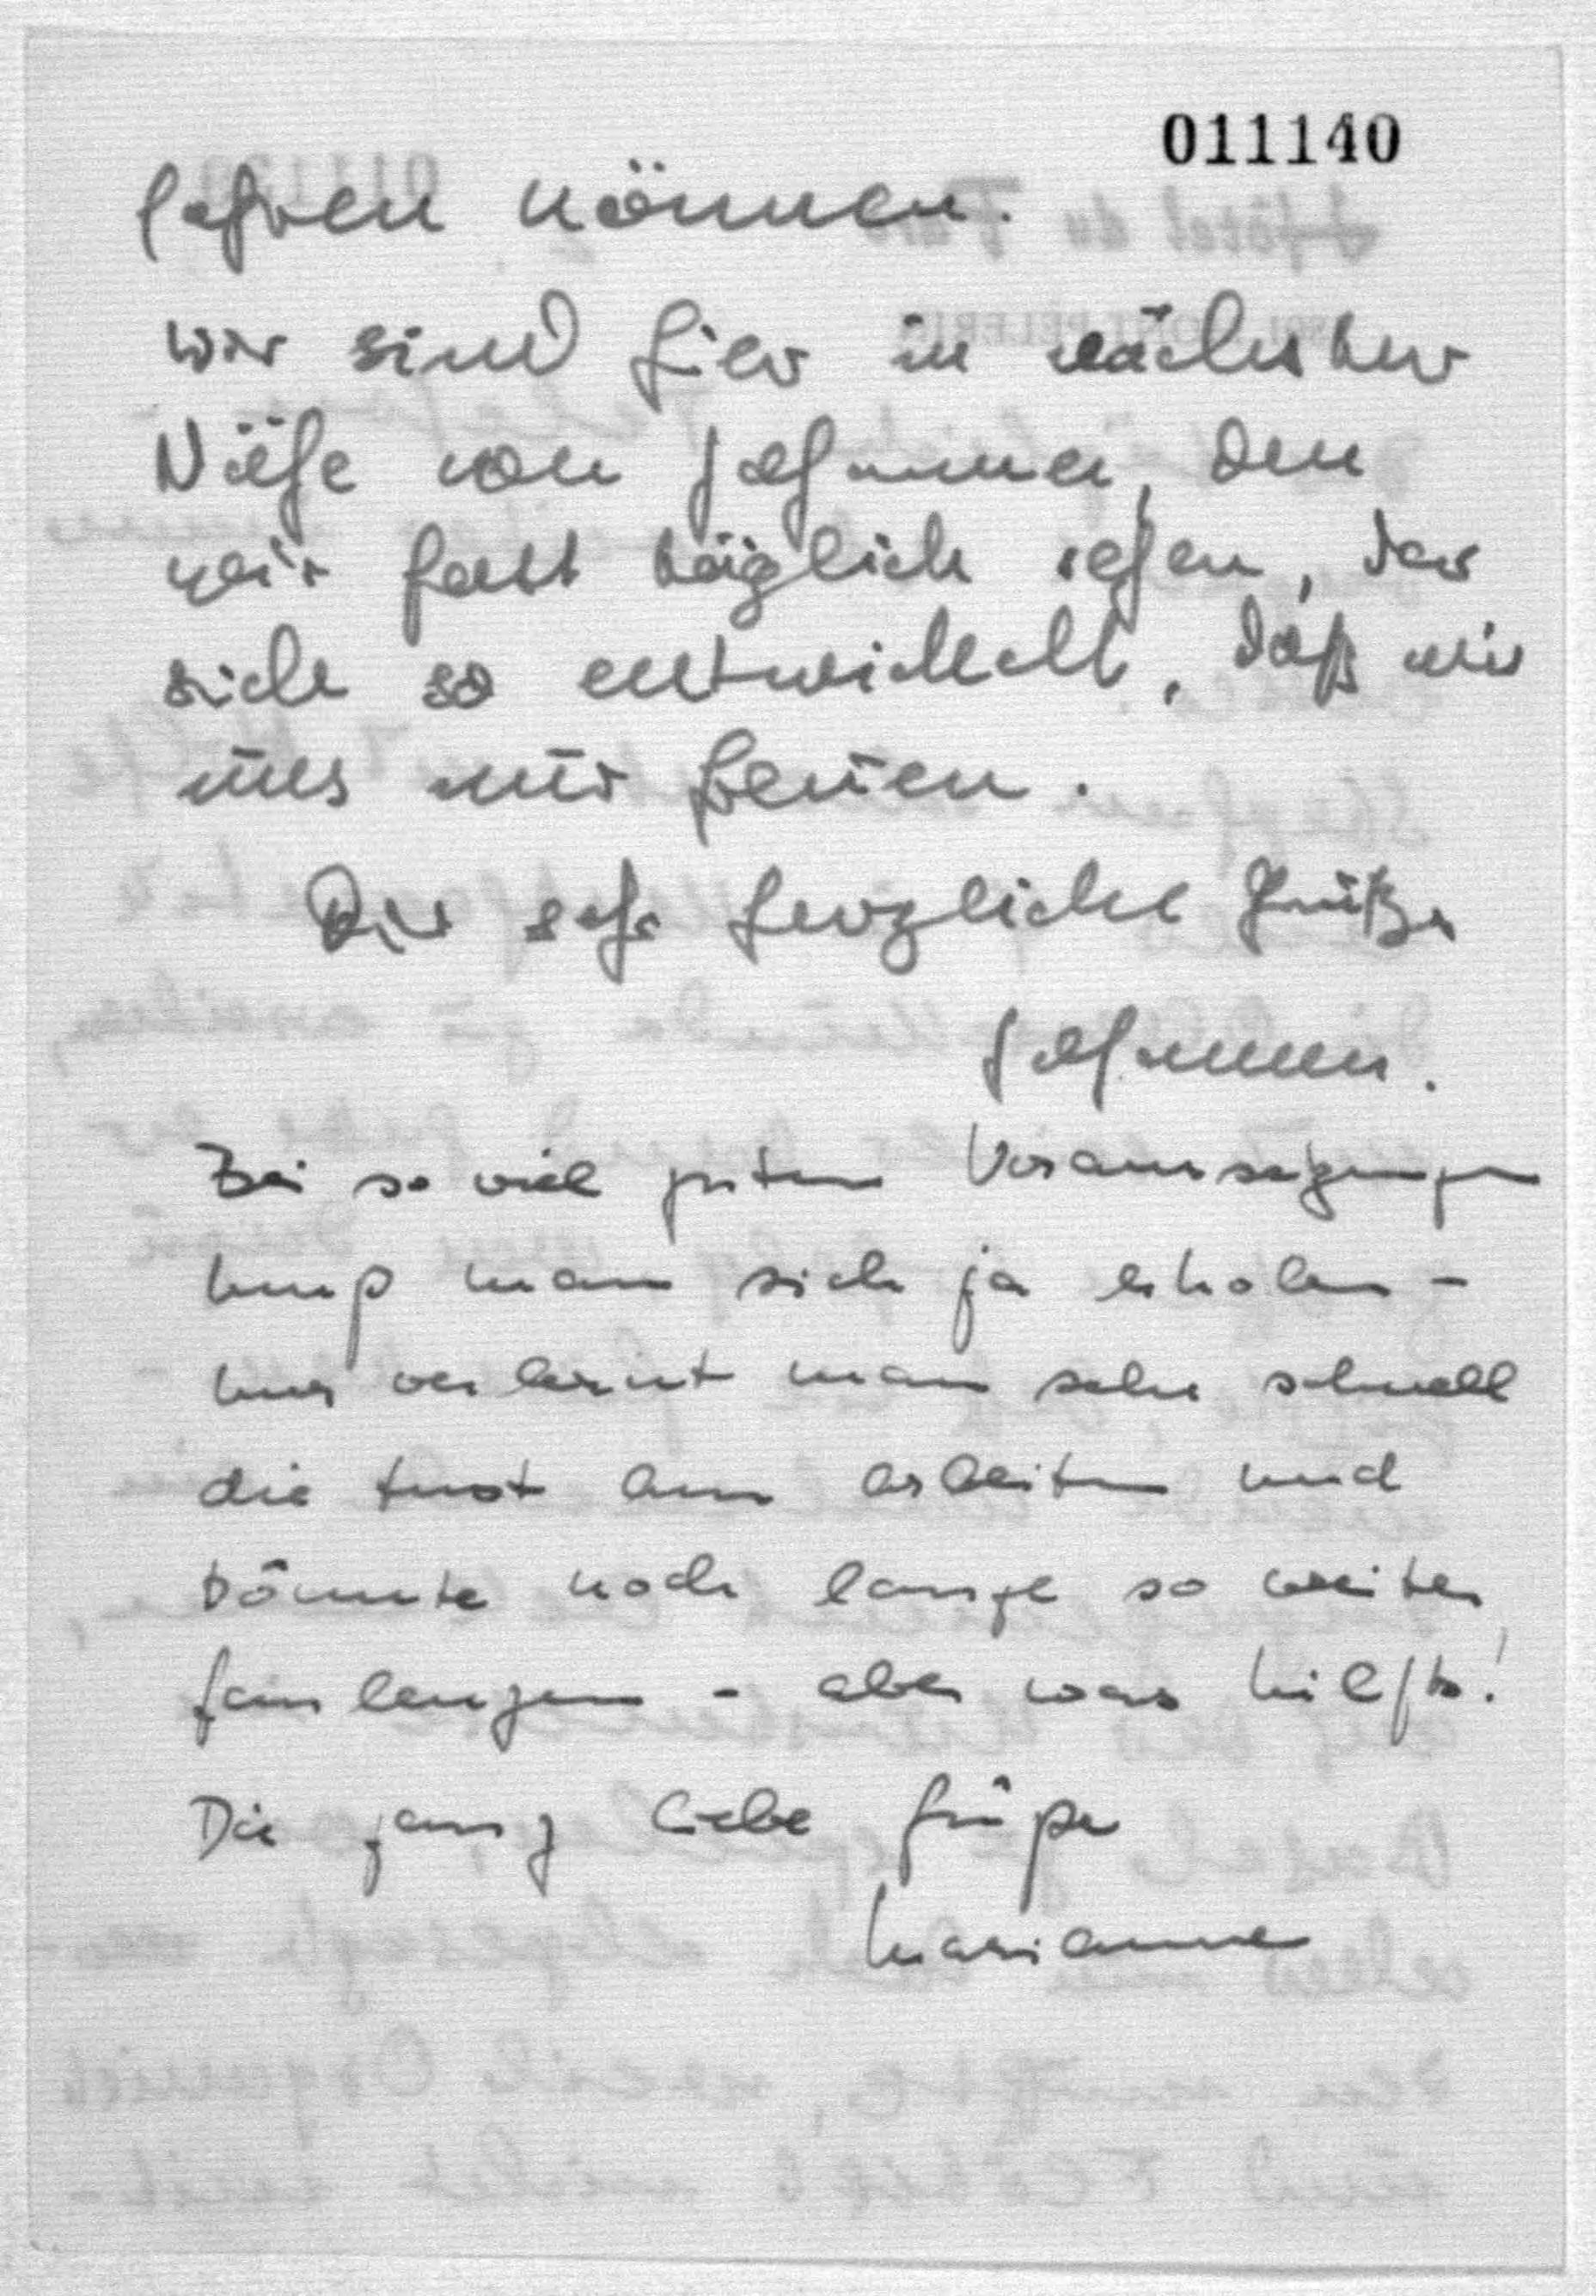 011140
fahren können.
wir sind hier in nächster
Nähe von Johannes, den
wir fast täglich sehen, der
sich so entwickelt, daß wir
uns nur freuen.
Dir sehr herzliche Grüße
Johannes.
Bei so viel guten Voraussetzungen
muß man sich ja erholen -
nur verlernt man sehr schnell
die Lust am arbeiten und
könnte noch lange so weiter
faulenzen - aber was hilfts!
Dir ganz liebe Grüße
Marianne